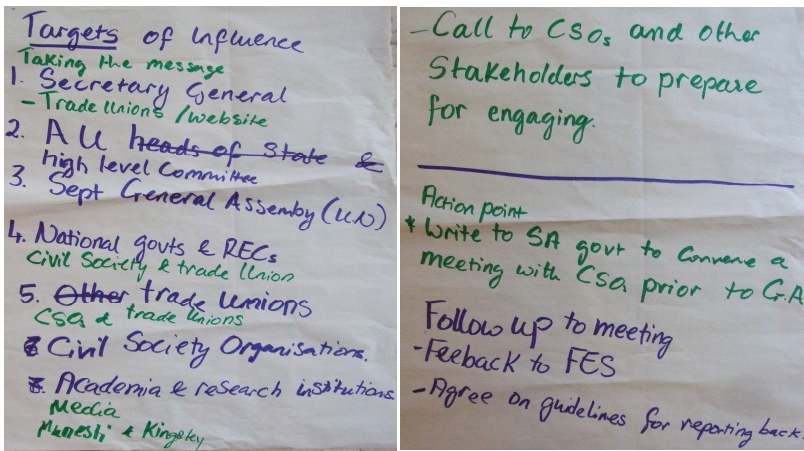 Targets of Influence
Taking the message
1. Secretary General
- Trade Unions / website
2. AU heads of State &
High level Committee
3. Sept General Assembly (UN)
4. National govts & RECs
Civil Society & trade Union
5. Other trade unions
CSOs & trade Unions
Civil Society Organisations.
Academia & research institutions
Media
Muneshi & Kingsley
- Call to CSOs and other
Stakeholders to prepare
for engaging.
Action point
* Write to SA govt to convene a
meeting with CSOs prior to G.A
Follow up to meeting
- Feeback to FES
- Agree on guidelines for reporting back.